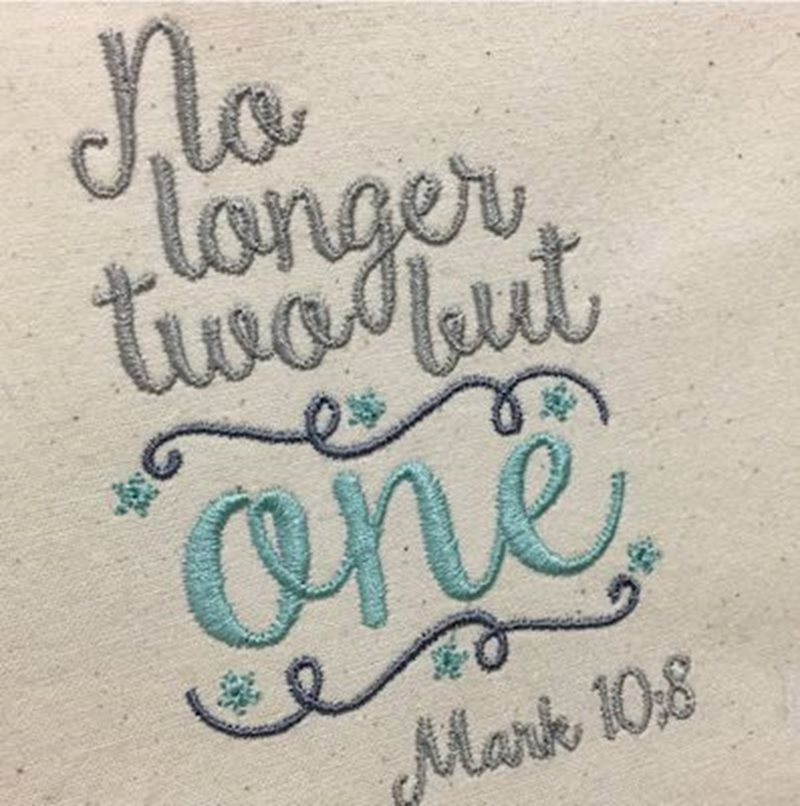 No
longer
two but
one
Mark 10:8